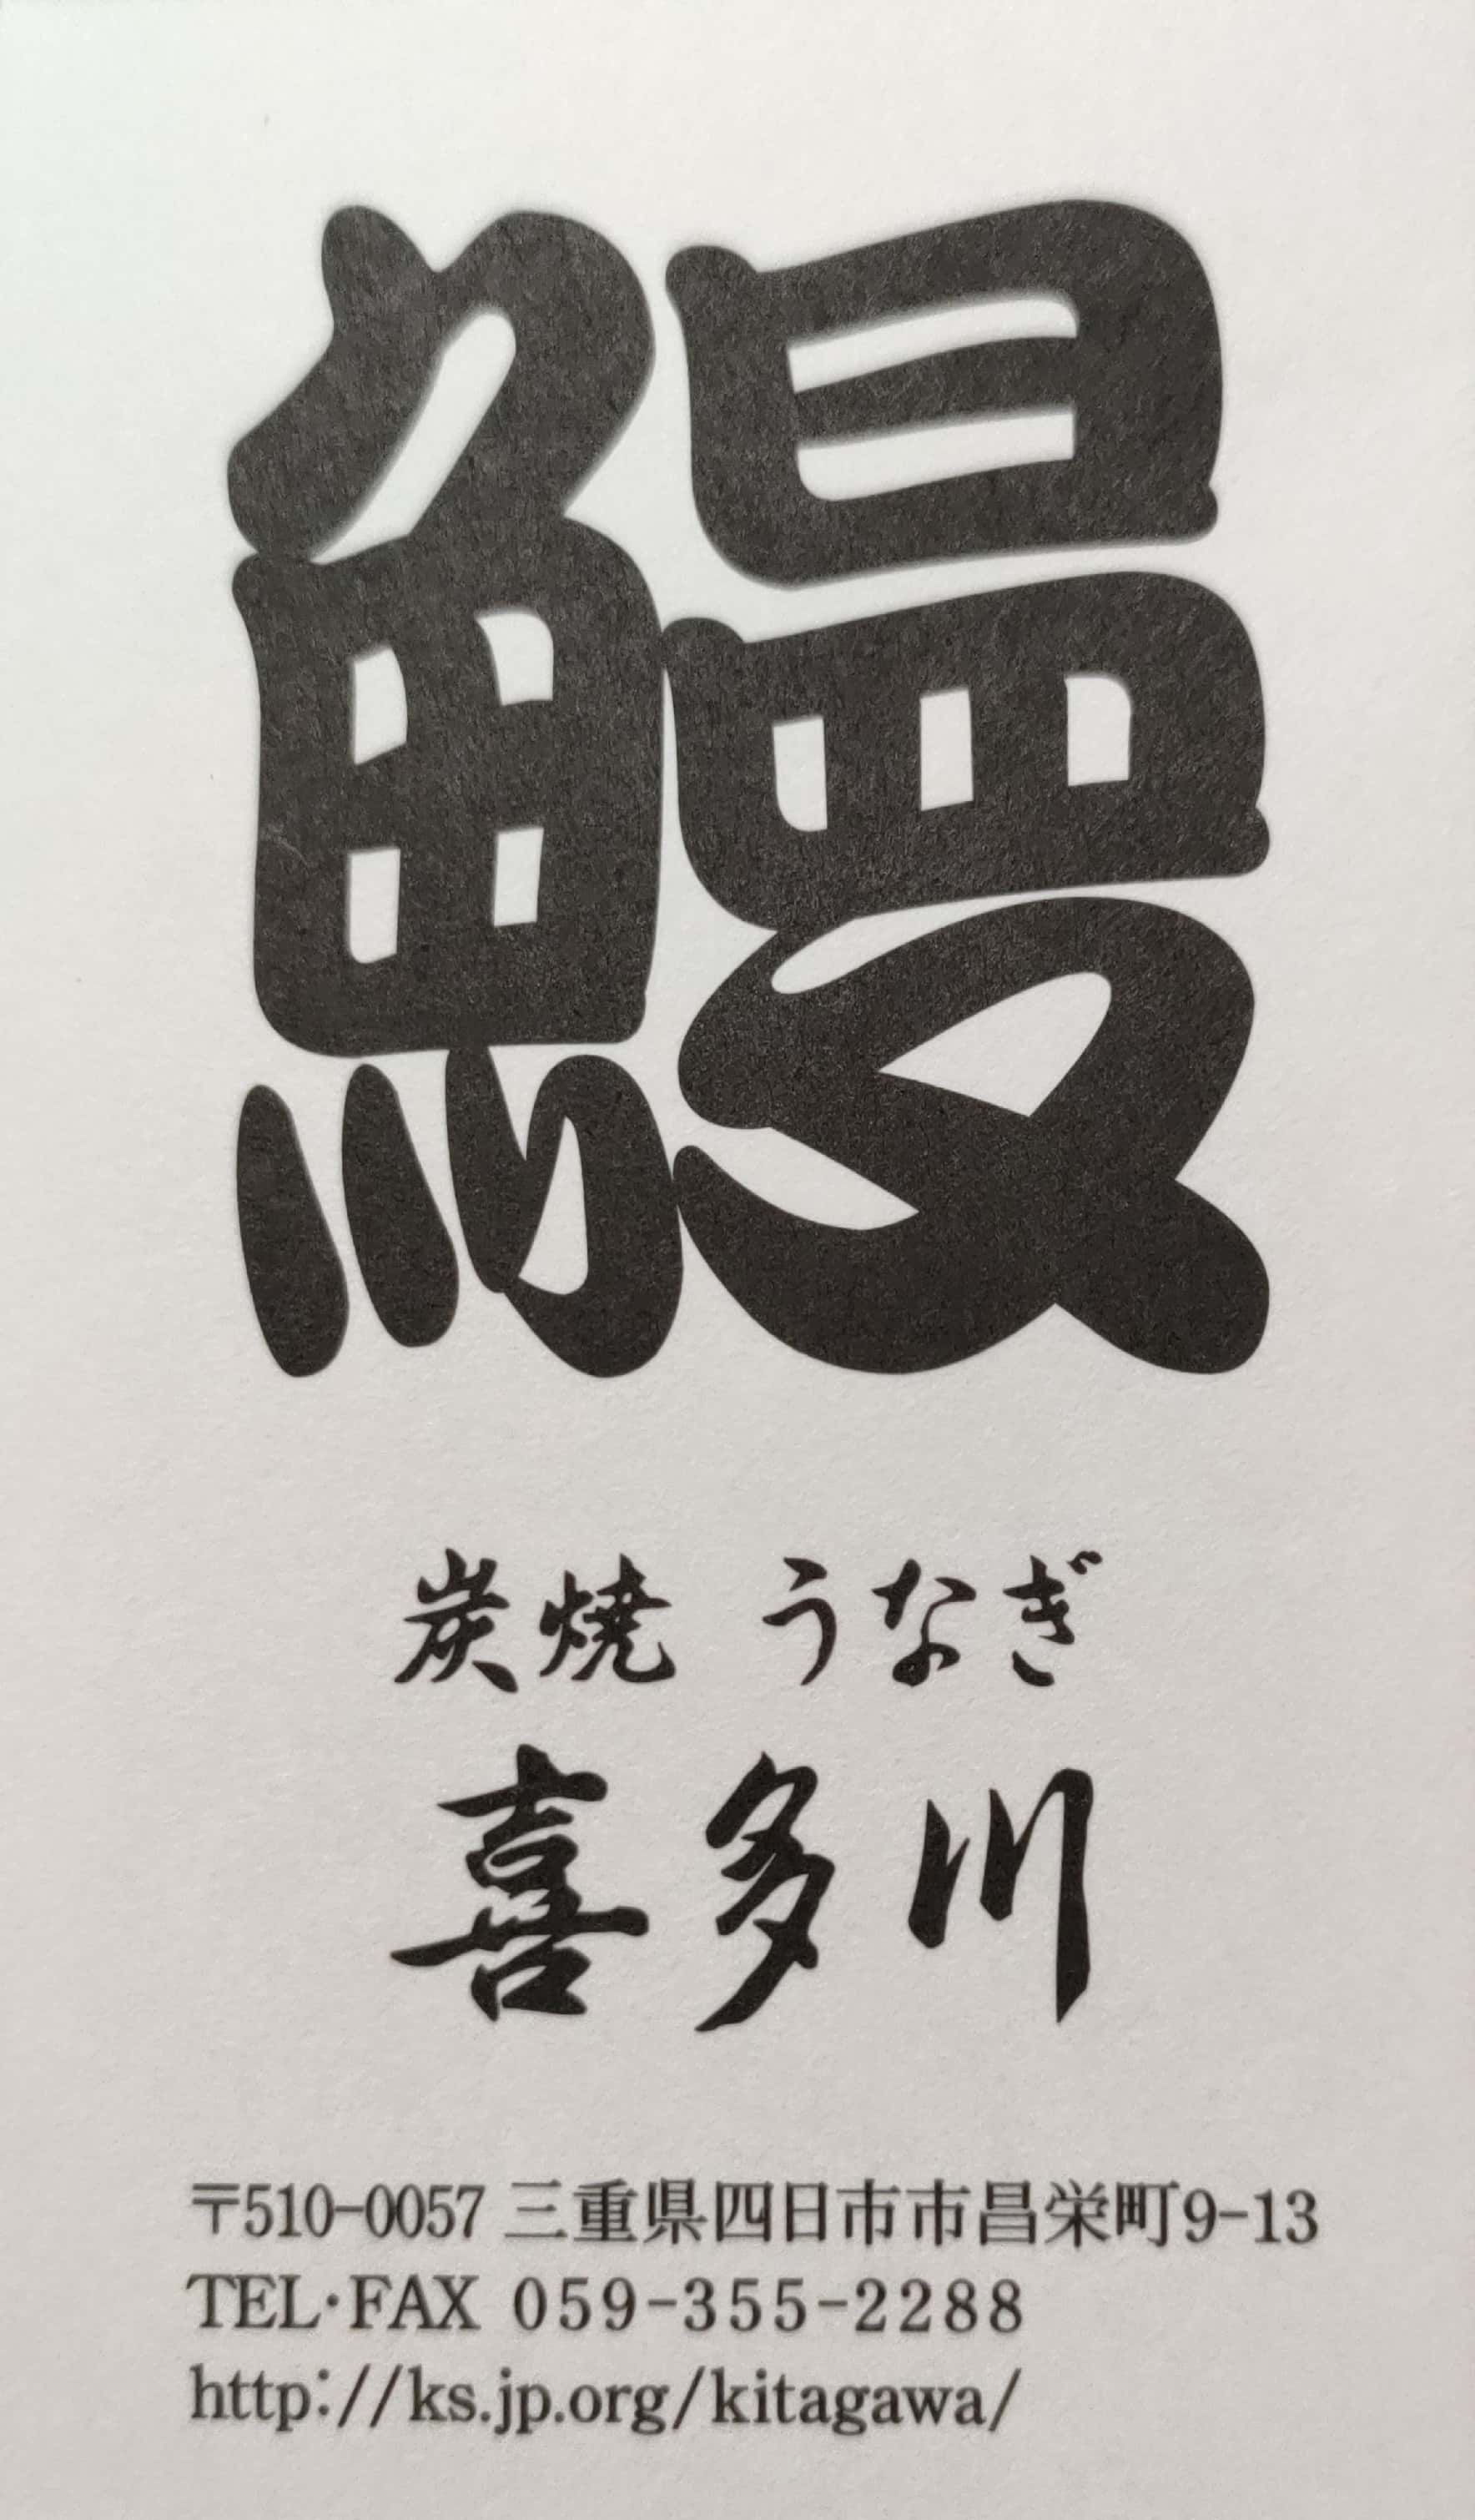 鰻
炭焼 うなぎ
喜多川
〒510-0057 三重県四日市市昌栄町9-13
TEL･FAX 059-355-2288
http://ks.jp.org/kitagawa/